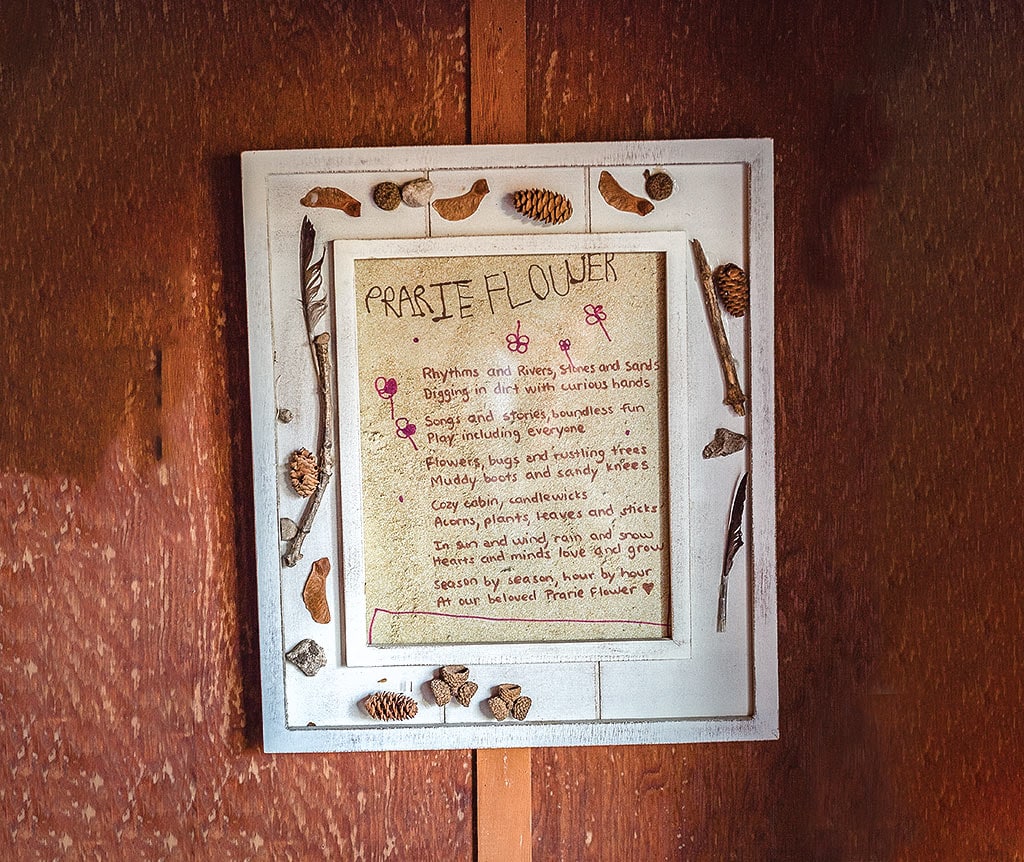 PRARIE FLOWER
Rhythms and Rivers, Stones and Sands
Digging in dirt with curious hands
Songs and stories, boundless fun
Play including everyone
Flowers, bugs and rustling trees
Muddy boots and sandy knees
Cozy cabin, candlewicks
Acorns, plants, leaves and sticks
In sun and wind, rain and snow
Hearts and minds love and grow
Season by season, hour by hour
At our beloved Prarie Flower ♥